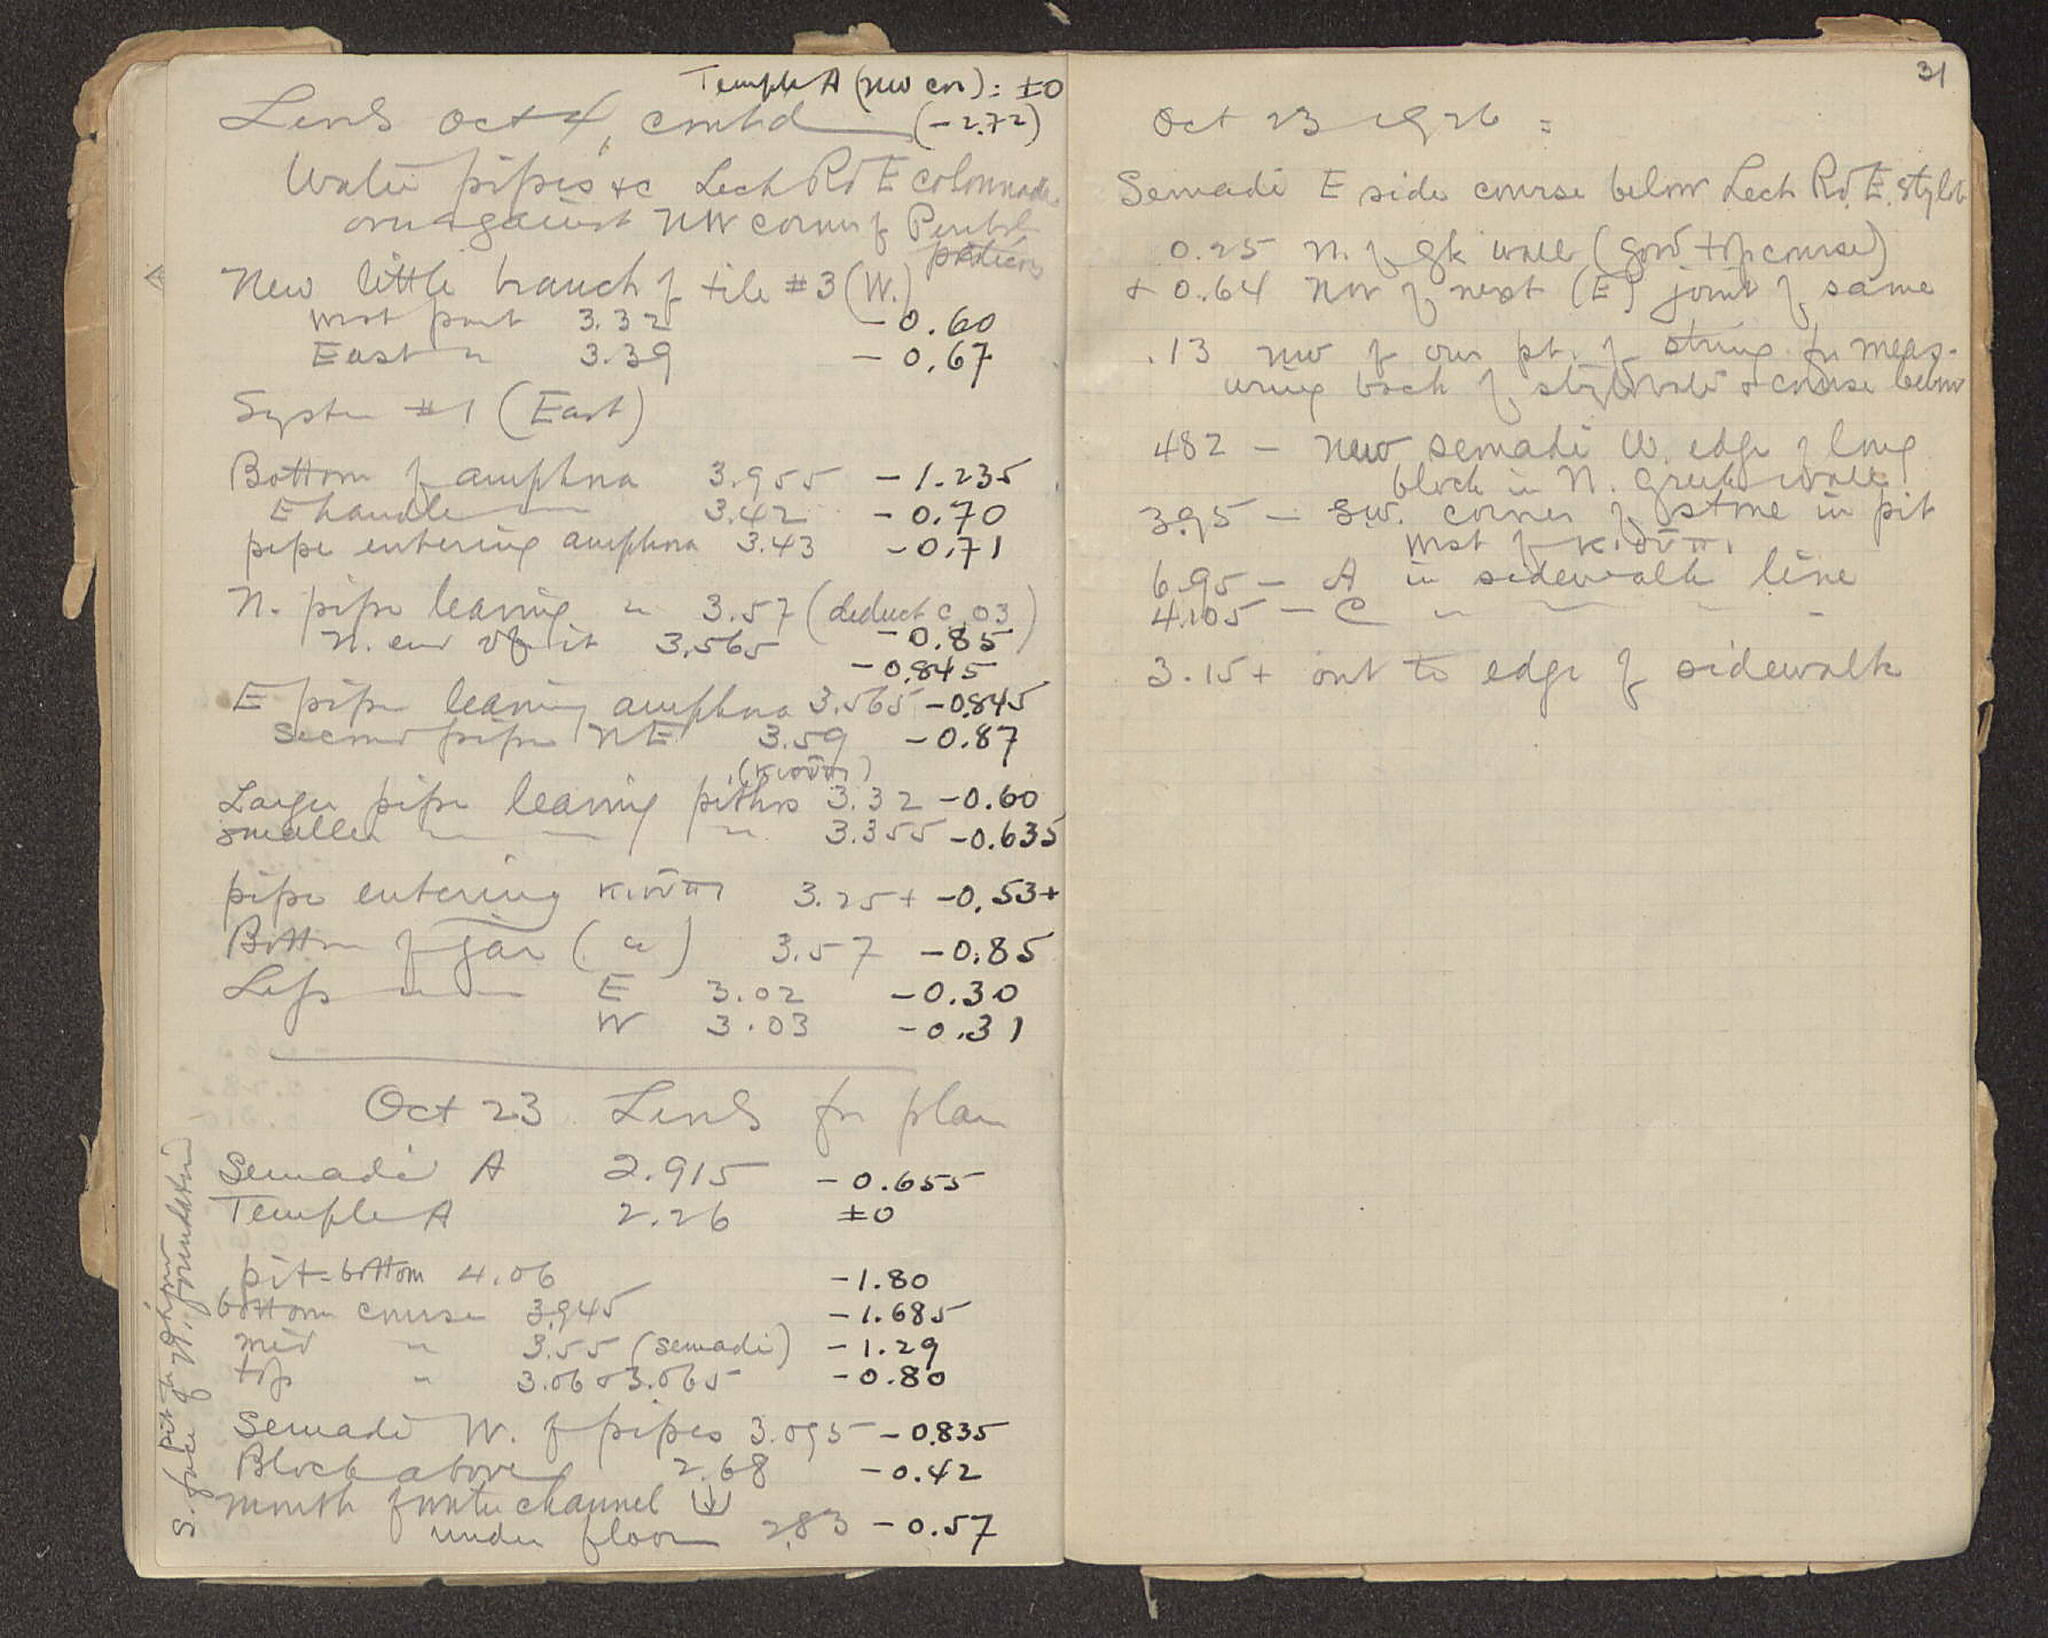 Temple A (NW cor): ±0
Levels Oct 4, contd (-2.72)
Water pipes &c Lech Rd E colonnade
over against NW corner of Peribol
New little branch of tile #3 (W.)
West part 3.32 -0.60
East " 3.39 -0.67
System #1 (East)
Bottom of amphora 3.955 -1.235
E handle — 3.42 -0.70
pipe entering amphora 3.43 -0.71
N. pipe leaving " 3.57 (deduct c .03)
-0.85
N. end of it 3.565
-0.845
E pipe leaving amphora 3.565 -0.845
Second pipe NE 3.59 -0.87
(κιούπι)
Larger pipe leaving pithos 3.32 -0.60
smaller " — " 3.355 -0.635
pipe entering κιούπι 3.25+ -0.53+
Bottom of jar ( " ) 3.57 -0.85
Lips " — E 3.02 -0.30
W 3.03 -0.31
Oct 23 Levels for plan
Semadi A 2.915 -0.655
Temple A 2.26 ±0
pit-bottom 4.06 -1.80
bottom course 3.945 -1.685
mid " 3.55 (semadi) -1.29
top " 3.06 & 3.065 -0.80
Semadi W. of pipes 3.095 -0.835
Block above 2.68 -0.42
mouth of water channel
under floor 2.83 -0.57
S. face of foundation
31
Oct 23 1926 =
Semadi E side course below Lech Rd. E. stylob
0.25 N. of Gk wall (good top course)
& 0.64 NW of next (E) joint of same
.13 NW of our pt. of string for meas-
uring back of stylobate & course below
482 — New semadi W. edge of long
block in N. Greek wall
3.95 — SW. corner of stone in pit
west of κιούπι
6.95 — A in sidewalk line
4.105 — C " — " —
3.15+ out to edge of sidewalk